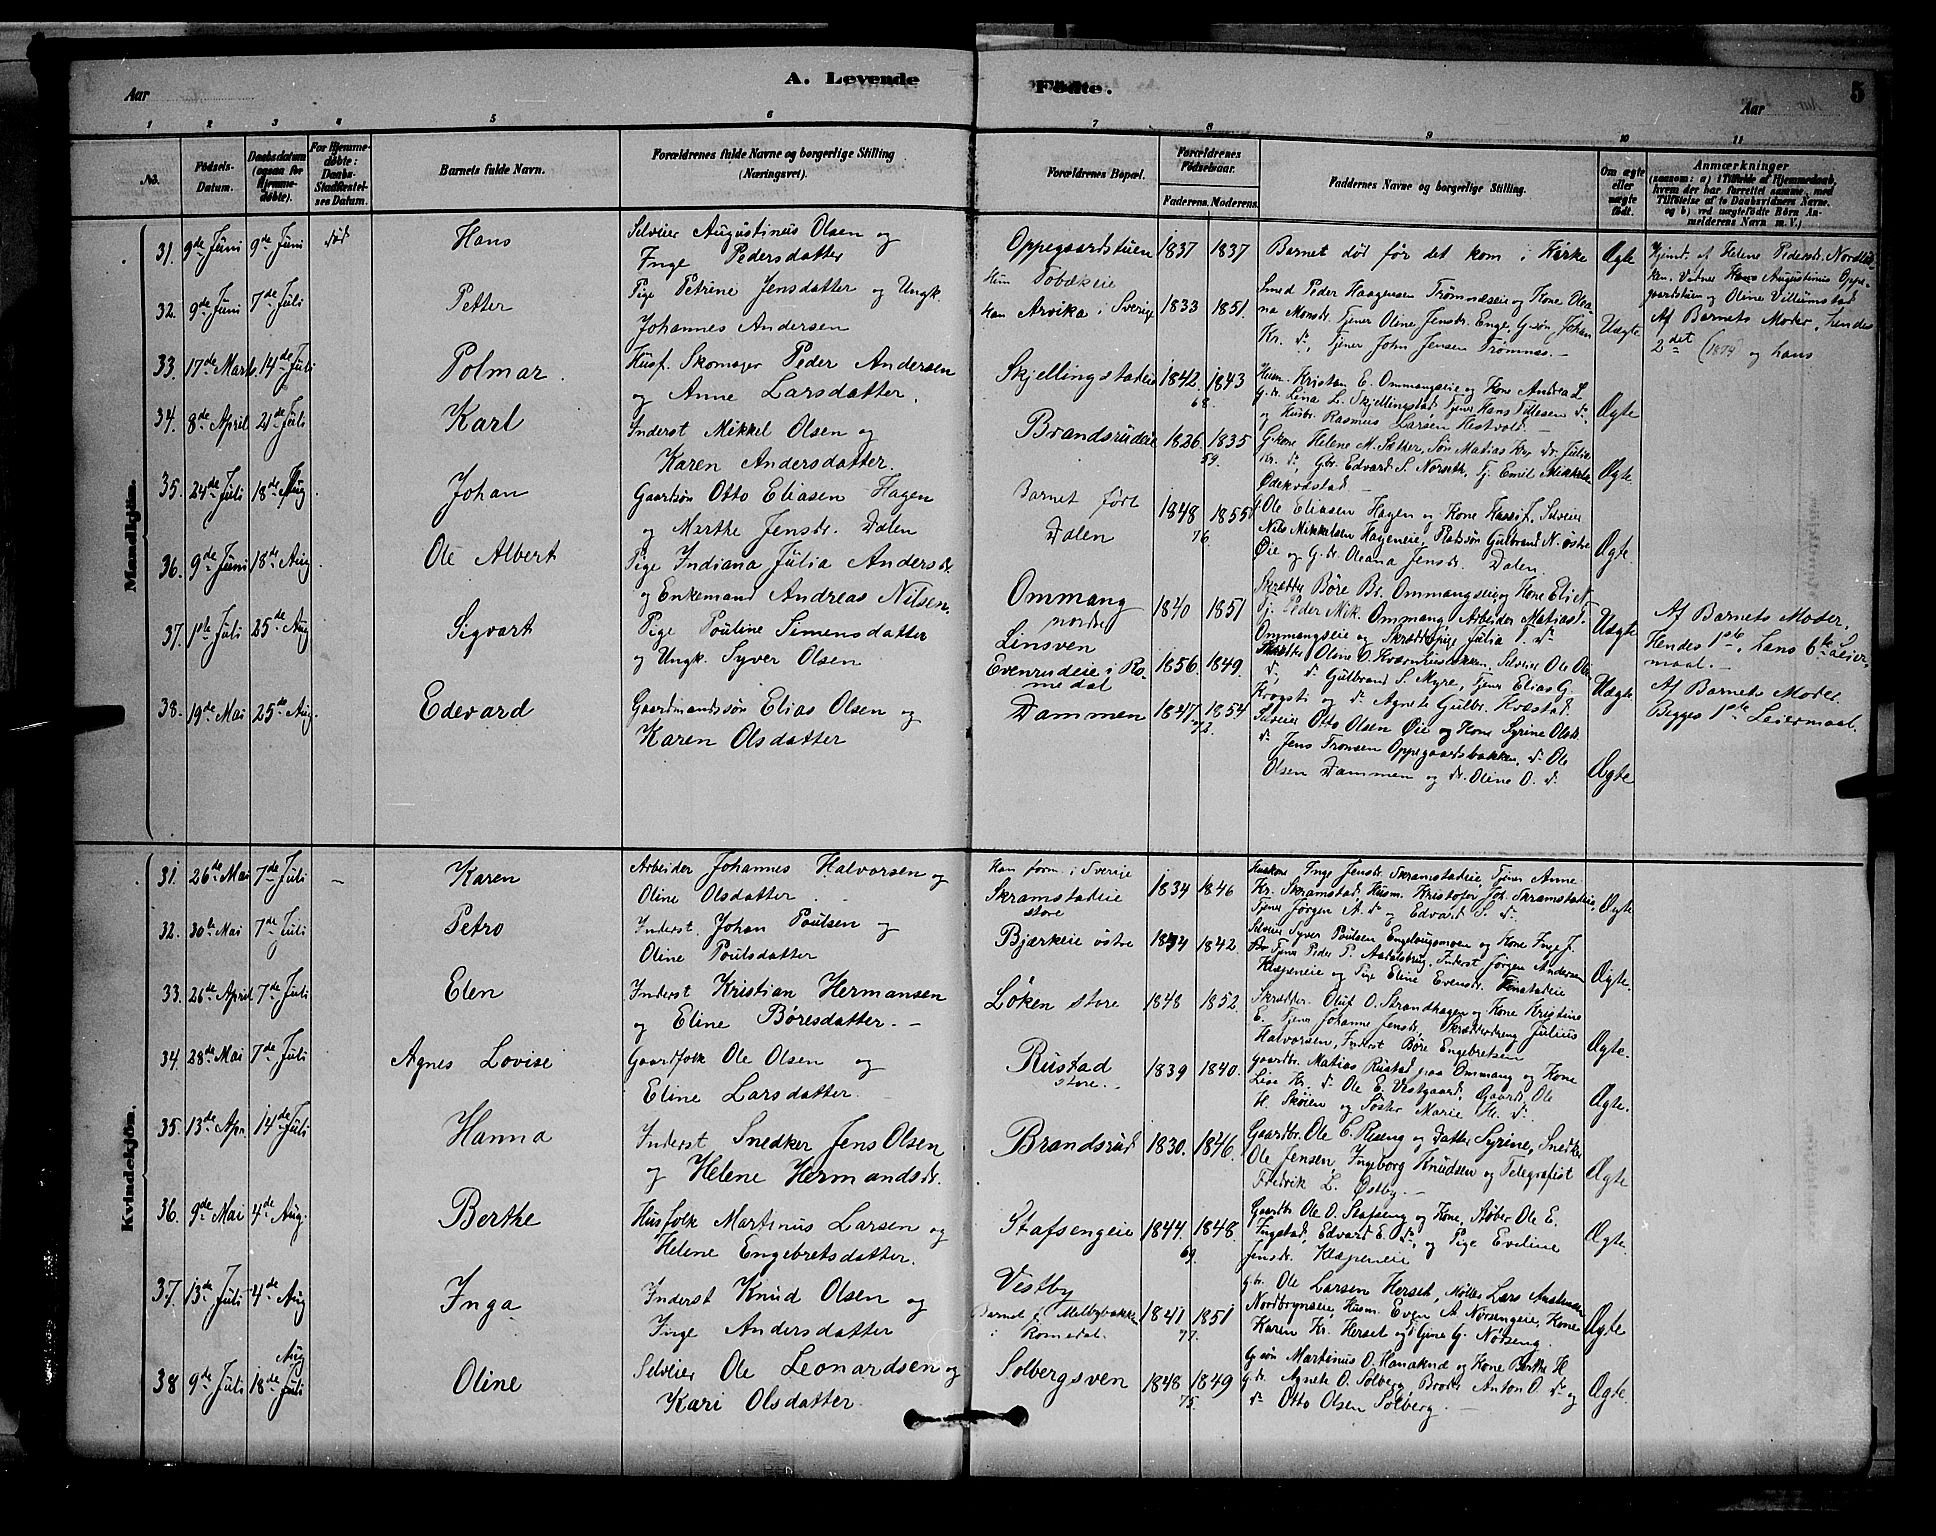 A. Levende Fødte. 5
Aar Aar
1 2 3 4 5 6 7 8 9 10 11
No. Fødsels-Datum. Daabsdatum (ogsaa for Hjemmedøbte). For Hjemmedøbte: Daabs-Stadfæstelses Datum. Barnets fulde Navn. Forældrenes fulde Navne og borgerlige Stilling (Næringsvei). Forældrenes Bopæl. Forældrenes Fødselsaar. Faderens. Moderens. Faddernes Navne og borgerlige Stilling. Om ægte eller uægte født. Anmærkninger (saasom: a) i Tilfælde af Hjemmedaab, hvem der har forrettet samme, med Tilføielse af to Daabsvidners Navne. og b) ved uægtefødte Børn Anmelderens Navn m. V.)
Mandkjøn.
31. 9de Juni 9de Juni død Hans Selveier Augustinus Olsen og
Inge Pedersdatter Oppegaardstuen 1837 1837 Barnet død før det kom i Kirke Ægte Hjemd. af Helene Pedersd.
Vidner Hans Augustinus Oppegaardstuen og Oline Villumstad
32. 9de Juni 7de Juli Petter Pige Petrine Jensdatter og Ungk.
Johannes Andersen Hun Tobækeie
Han Arvika i Sverig 1833 1851. Smed Peder Haagensen Trømnæseie og Kone Oleana Monsdr. Tjener Oline Jensdr. Enge, G.søn Johan
Kr. do, Tjener John Jensen Trømnæs. Uægte Af Barnets Moder, hendes
2det (1874) og hans
33. 17de Marts 14de Juli Polmar. Husf. Skomager Peder Andersen
og Anne Larsdatter. Skjellingstadeie 1842 1843
68. Husm. Kristian E. Ommangseie og Kone Andrea L.
g. dr. Lina L. Skjellingstad, Tjener Hans Tillesen do
og Husbr. Rasmus Larsen Hestvold. Ægte
34. 8de April 21de Juli Karl Inderst Mikkel Olsen og
Karen Andersdatter. Brandsrudeie 1826 1835
59. G.kone Helene M. Sætker, Søn Matias Kr., Dr. Julia
Kr. do, Gbr. Edvard S. Norseth, Tj. Emil Mikkels.
Ødekvæstad Ægte
35. 24de Juli 18de Aug. Johan Gaardsøn Otto Eliasen Hagen
og Marthe Jensdr. Dalen Barnet født
Dalen 1848 1855
76. Ole Eliasen Hagen og Kone, Selveier
Nils Mikkelsen Hageneie, Pladssøn Gulbrand N. østre
Øie og G. dr. Oleana Jensdr. Dalen. Ægte.
36. 9de Juni 18de Aug Ole Albert Pige Indiana Julia Andersdr.
og Enkemand Andreas Nilsen. Ommang
nordre 1840 1851 Skrædder Børe Br. Ommangseie og Kone Eli N.
Tj. Peder Mik. Ommang, Arbeider Matias T.
Ommangseie og Skrædderpige Julia T. do Uægte Af Barnets Moder,
Hendes 1ste, hans 6te Leiermaal.
37. 1ste Juli 25de Aug Sigvart Pige Pouline Simensdatter
og Ungk. Syver Olsen Linsven
Evenrudeie i Romedal 1856 1849. Oline O. Kværnhusbakken, Selveier Ole Olsen
do, do Gulbrand S. Myre, Tjener Elias G.
Krogsti og do Agnete Gulbr. Kvæstad Uægte Af Barnets Moder
Begges 1ste Leiermaal.
38. 19de Mai 25de Aug. Edevard Gaardmandssøn Elias Olsen og
Karen Olsdatter Dammen 1847 1854
72. Selveier Otto Olsen Øie og Kone Syrine Olsd.
do Jens Tronsen Oppegaardsbakken, do Ole
Olsen Dammen og dr. Oline O. do Ægte
Kvindekjøn.
31. 26de Mai 7de Juli – Karen Arbeider Johannes Halvorsen og
Oline Olsdatter. Han form. i Sverige
Skramstadeie
store 1834 1846 Huskone Inge Jensdr. Skramstadeie, Tjener Anne
Kr. Skramstad, Husm. Kristofer Joh. Skramstadeie,
Tjener Jørgen A. do og Edvard S. do Ægte
32. 30te Mai 7de Juli Petro Inderst Johan Poulsen og
Oline Poulsdatter Bjærkeie østre 1834 1842. Selveier Syver Poulsen Engelaugsmoen og Kone Inge J.
Tjener Peder P. Aadalsbrug, Inderst Jørgen Andersen
Klæpeneie og Pige Eline Evensdr. Finstadeie Ægte.
33. 26de April 7de Juli Elen Inderst Kristian Hermansen
og Eline Børesdatter. – Løken store 1848 1852. Skrædder Oluf O. Strandhagen og Kone Kristine
E. Tjener Johanne Jensdr., Skrædderdreng Julius
Halvorsen, Inderst Børe Engebretsen Ægte.
34. 28de Mai 7de Juli Agnes Lovise Gaardfolk Ole Olsen og
Eline Larsdatter. Rustad
store. 1839 1840. Gaardbr. Matias Rustad paa Ommang og Kone
Lisa Kr. do Ole E. Vestgaard, Gaardb. Ole
H. Skøien og Søster Marie H. do Ægte.
35. 13de Apr. 14de Juli Hanna Inderst Snedker Jens Olsen
og Helene Hermandsdr. Brandsrud 1830. 1846. Gaardbr. Ole C. Reseng og Datter Syrine, Snedker
Ole Jensen, Ingeborg Knudsen og Telegrafist
Fredrik L. Østby. – Ægte
36. 9de Mai 4de Aug. Berthe Husfolk Martinus Larsen og
Helene Engebretsdatter. Stafsengeie 1844. 1848
69. Gaardbr. Ole O. Stafseng og Kone, Støber Ole E.
Ingstad, Edvard E. do, og Pige Eveline
Jensdr. Klæpeneie Ægte.
37. 13de Juli 4de Aug Inga Inderst Knud Olsen og
Inge Andersdatter Vestby
Barnet f. Melbybakke
i Romedal. 1841 1851
77. g.br. Ole Larsen Herset, Møller Lars Amundsen
Nordbrynseie, Husm. Even A. Norsengeie, Kone
Karen Kr. Herset og Gine G. Norseng. Ægte
38 9de Juli 18de Juli Aug Oline Selveier Ole Leonardsen og
Kari Olsdatter. Solbergsven 1848 1849
75. G.søn Martinus O. Hanaknæ og Kone Berthe H
g. dr. Agnete O. Solberg, Broder Anton O. do og
do Otto Olsen Solberg. – Ægte.